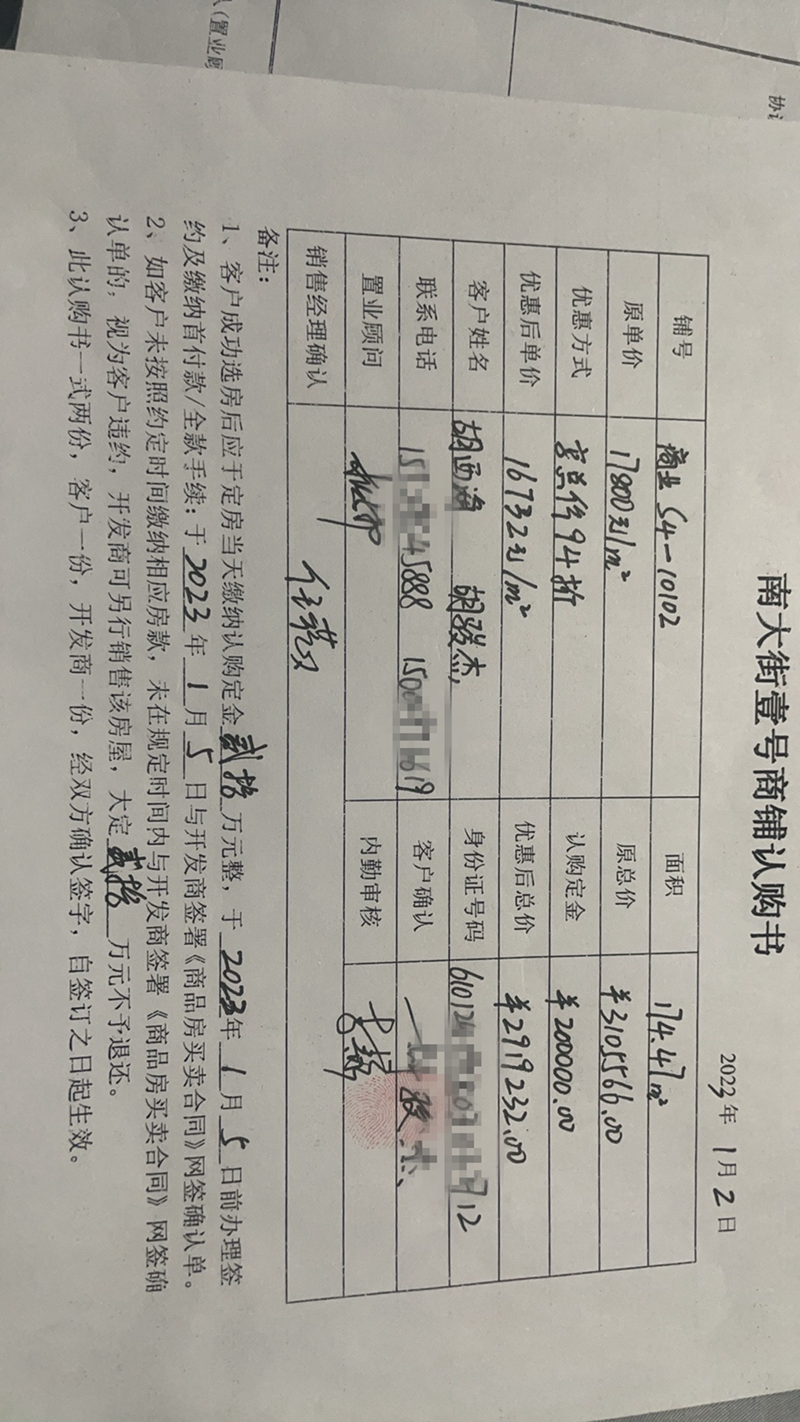 (置业顾
协议
南大街壹号商铺认购书
2023年1月2日
铺号 商业 S4-10102 面积 174.47m²
原单价 17800元/m² 原总价 ¥3105566.00
优惠方式 享总价94折 认购定金 ¥200000.00
优惠后单价 16732元/m² 优惠后总价 ¥2919232.00
客户姓名 胡西海 胡骏杰 身份证号码 610124 12
联系电话 15 45888 150 619 客户确认
置业顾问 内勤审核
销售经理确认
备注:
1、客户成功选房后应于定房当天缴纳认购定金 贰拾 万元整,于 2023年 1 月 5 日前办理签
约及缴纳首付款/全款手续;于 2023 年 1 月 5 日与开发商签署《商品房买卖合同》网签确认单。
2、如客户未按照约定时间缴纳相应房款,未在规定时间内与开发商签署《商品房买卖合同》网签确
认单的,视为客户违约,开发商可另行销售该房屋,大定 贰拾 万元不予退还。
3、此认购书一式两份,客户一份,开发商一份,经双方确认签字,自签订之日起生效。